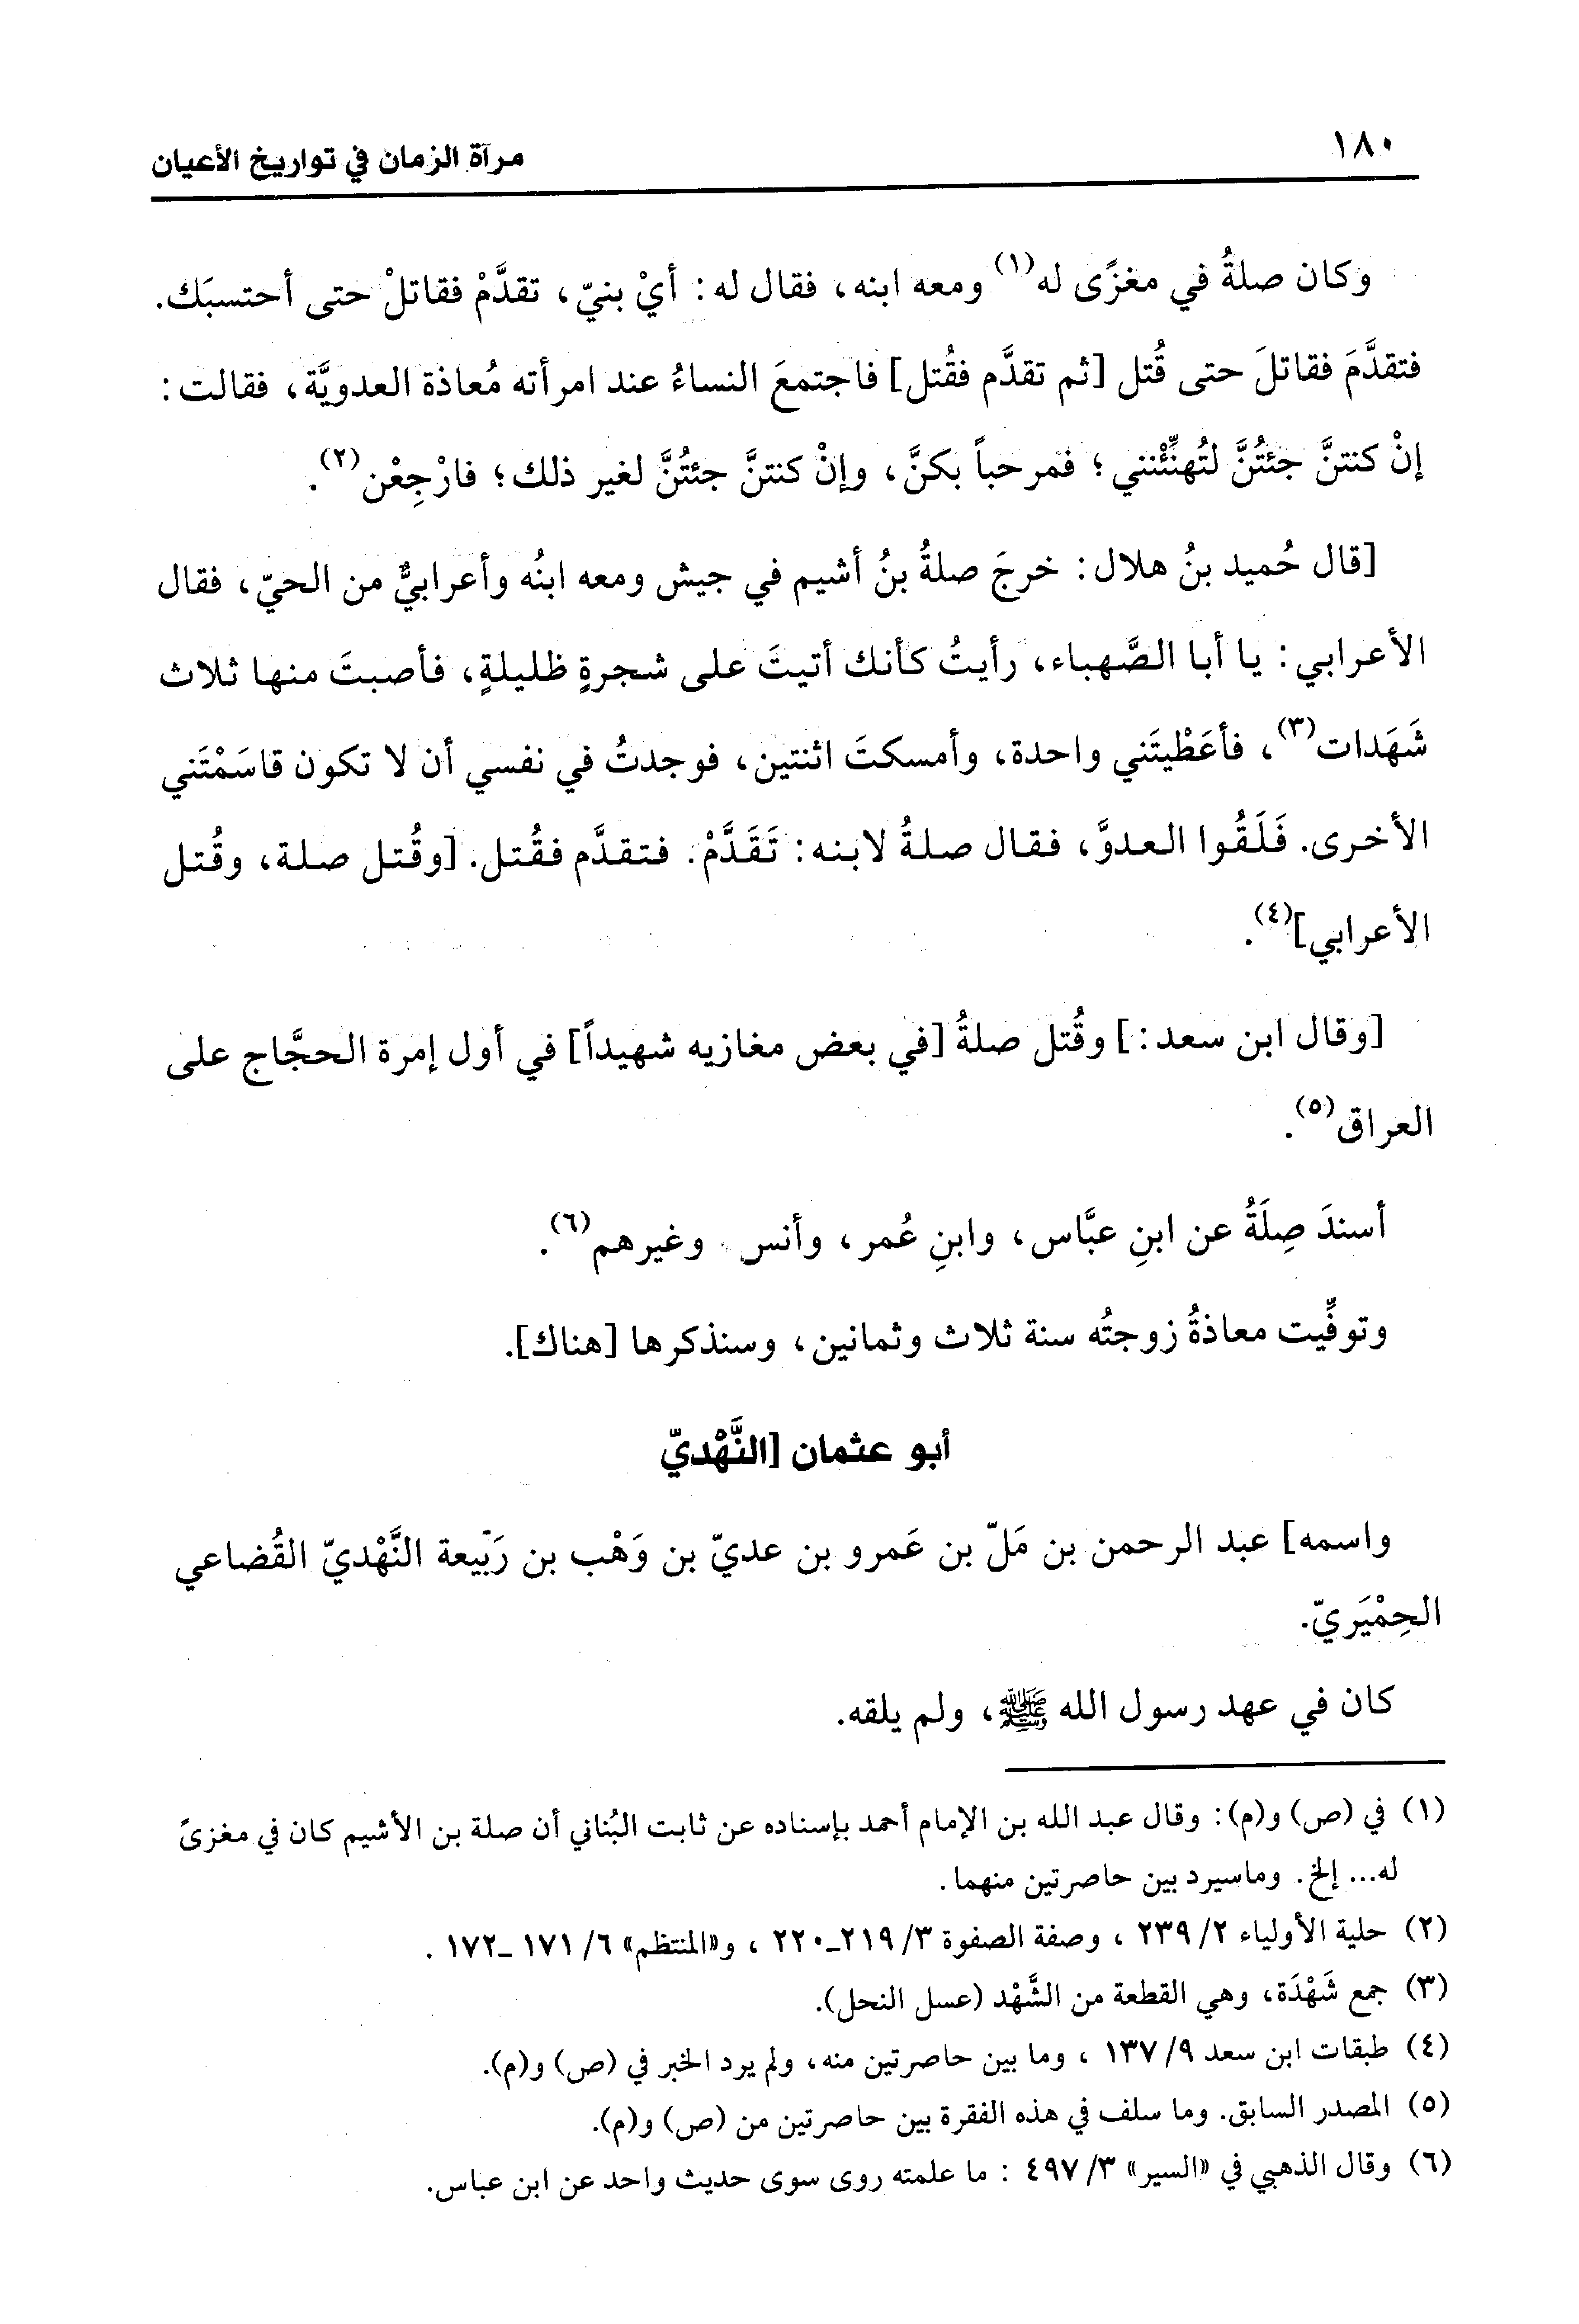 ١٨٠
مرآة الزمان في تواريخ الأعيان
وكان صلةُ في مغزًى له(١) ومعه ابنه، فقال له: أيْ بنيّ، تقدَّمْ فقاتلْ حتى أحتسبَك.
فتقدَّمَ فقاتلَ حتى قُتل [ثم تقدَّم فقُتل] فاجتمعَ النساءُ عند امرأته مُعاذة العدويَّة، فقالت:
إنْ كنتنَّ جئتُنَّ لتُهنِّئْنني؛ فمرحباً بكنَّ، وإنْ كنتنَّ جئتُنَّ لغير ذلك؛ فارْجِعْن(٢).
[قال حُميد بنُ هلال: خرجَ صلةُ بنُ أشيم في جيش ومعه ابنُه وأعرابيٌّ من الحيّ، فقال
الأعرابي: يا أبا الصَّهباء، رأيتُ كأنك أتيتَ على شجرةٍ ظليلةٍ، فأصبتَ منها ثلاث
شَهَدات(٣)، فأعَطْيتَني واحدة، وأمسكتَ اثنتين، فوجدتُ في نفسي أن لا تكون قاسَمْتَني
الأخرى. فَلَقُوا العدوَّ، فقال صلةُ لابنه: تَقَدَّمْ. فتقدَّم فقُتل. [وقُتل صلة، وقُتل
الأعرابي](٤).
[وقال ابن سعد:] وقُتل صلةُ [في بعض مغازيه شهيداً] في أول إمرة الحجَّاج على
العراق(٥).
أسندَ صِلَةُ عن ابنِ عبَّاس، وابنِ عُمر، وأنس وغيرهم(٦).
وتوفِّيت معاذةُ زوجتُه سنة ثلاث وثمانين، وسنذكرها [هناك].
أبو عثمان [النَّهْديّ
واسمه] عبد الرحمن بن مَلّ بن عَمرو بن عديّ بن وَهْب بن رَبيعة النَّهْديّ القُضاعي
الحِمْيَريّ.
كان في عهد رسول الله ﷺ، ولم يلقه.
(١) في (ص) و(م): وقال عبد الله بن الإمام أحمد بإسناده عن ثابت البُناني أن صلة بن الأشيم كان في مغزىً
له... إلخ. وماسيرد بين حاصرتين منهما.
(٢) حلية الأولياء ٢/ ٢٣٩ ، وصفة الصفوة ٣/ ٢١٩ـ٢٢٠ ، و«المنتظم» ٦/ ١٧١ ـ١٧٢ .
(٣) جمع شَهْدَة، وهي القطعة من الشَّهْد (عسل النحل).
(٤) طبقات ابن سعد ٩/ ١٣٧ ، وما بين حاصرتين منه، ولم يرد الخبر في (ص) و(م).
(٥) المصدر السابق. وما سلف في هذه الفقرة بين حاصرتين من (ص) و(م).
(٦) وقال الذهبي في «السير» ٣/ ٤٩٧ : ما علمته روى سوى حديث واحد عن ابن عباس.